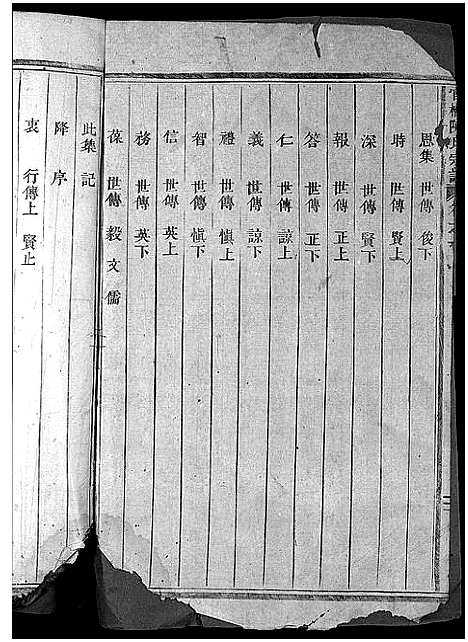 恩集 世傳 俊下
時 世傳 賢上
深 世傳 賢下
報 世傳 正上
答 世傳 正下
仁 世傳 諒上
義 世傳 諒下
禮 世傳 愼上
智 世傳 愼下
信 世傳 英上
務 世傳 英下
葆 世傳 毅 文 儒
此集 記
降 序
衷 行傳上 賢止